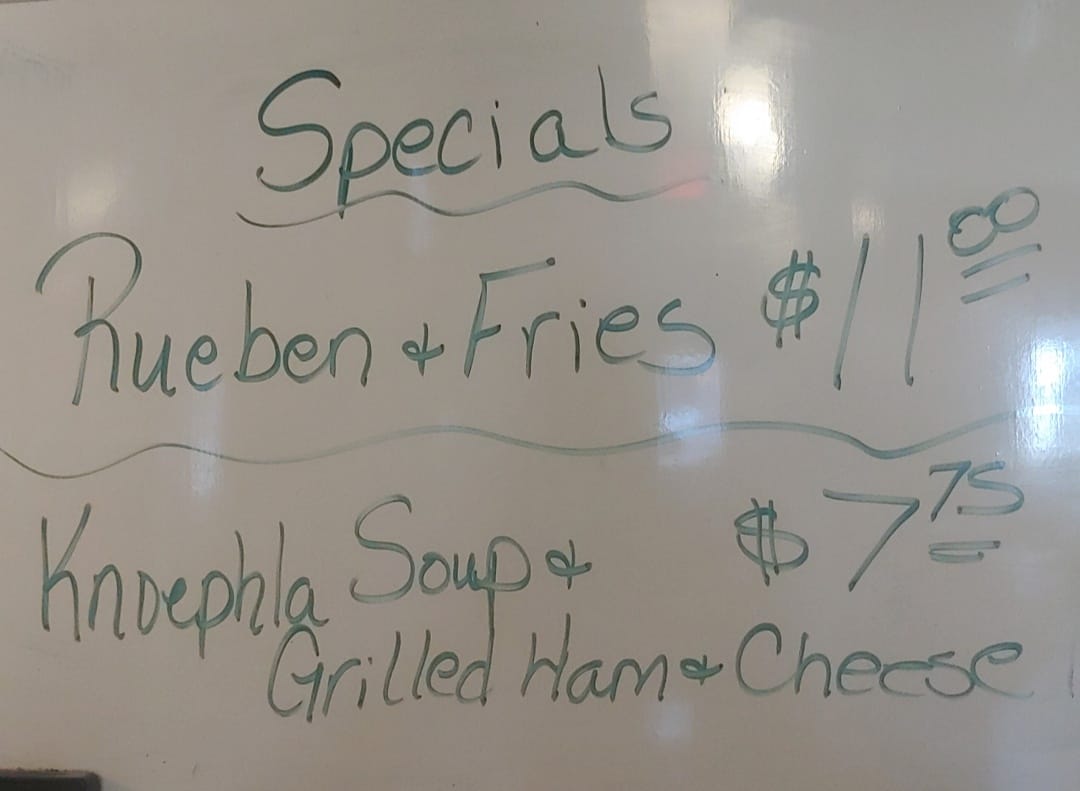 Specials
Rueben & Fries $11 00
Knoephla Soup & $7 75
Grilled Ham & Cheese